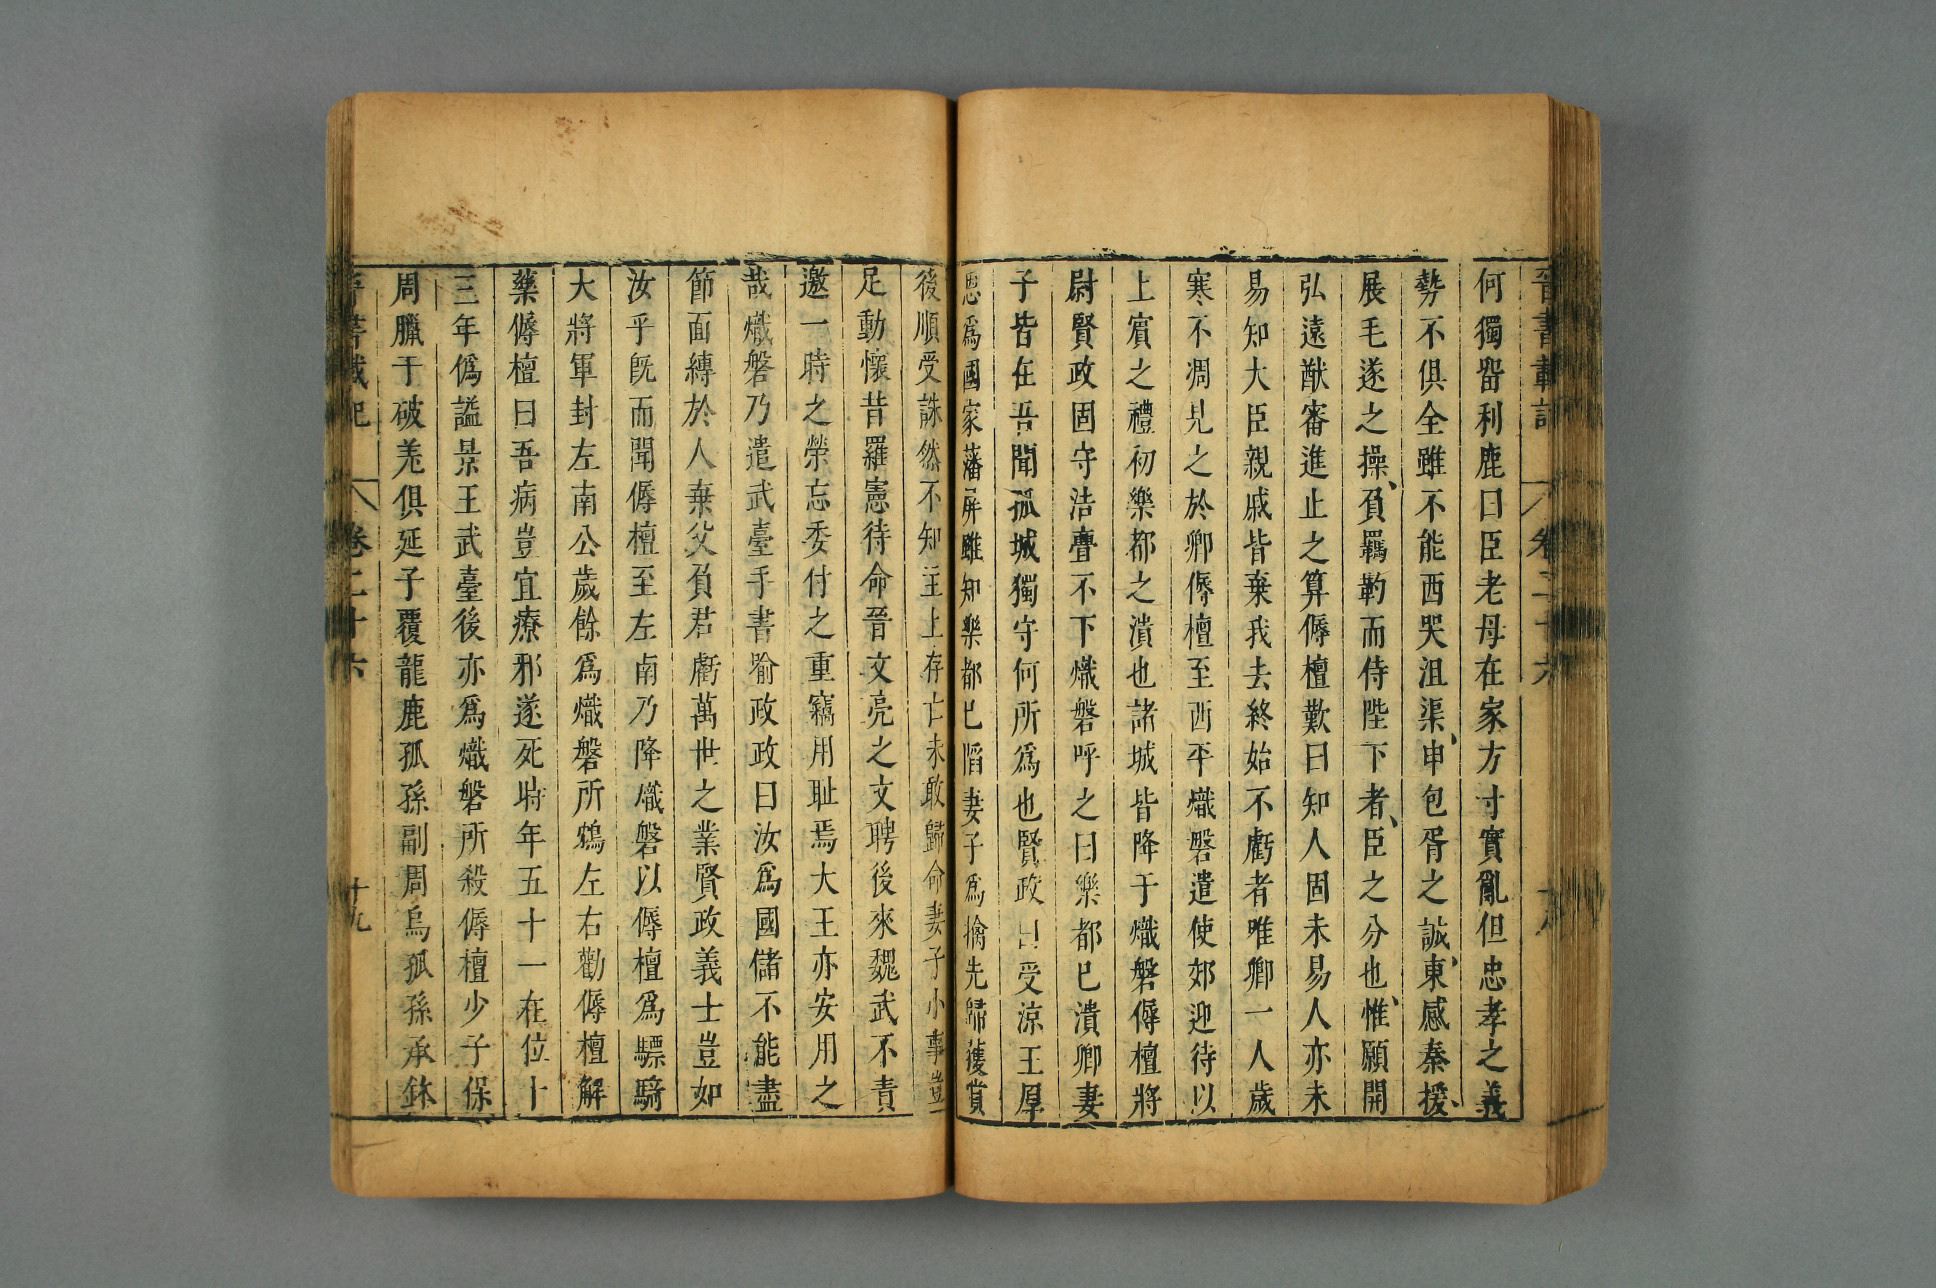 晉書載記　卷二十六　十八
何獨留利鹿曰臣老母在家方寸實亂但忠孝之義
勢不俱全雖不能西哭沮渠申包胥之誠東感秦援
展毛遂之操負羈靮而侍陛下者臣之分也惟願開
弘遠猷審進止之算傉檀歎曰知人固未易人亦未
易知大臣親戚皆棄我去終始不虧者唯卿一人歲
寒不凋見之於卿傉檀至西平熾磐遣使郊迎待以
上賓之禮初樂都之潰也諸城皆降于熾磐傉檀將
尉賢政固守浩亹不下熾磐呼之曰樂都已潰卿妻
子皆在吾閒孤城獨守何所爲也賢政曰受涼王厚
恩爲國家藩屏雖知樂都已陷妻子爲擒先歸獲賞
後順受誅然不知主上存亡未敢歸命妻子小事豈
足動懷昔羅憲待命晉文亮之文聘後來魏武不責
邀一時之榮忘委付之重竊用耻焉大王亦安用之
哉熾磐乃遣武臺手書喻政政曰汝爲國儲不能盡
節面縛於人棄父負君虧萬世之業賢政義士豈如
汝乎旣而聞傉檀至左南乃降熾磐以傉檀爲驃騎
大將軍封左南公歲餘爲熾磐所鴆左右勸傉檀解
藥傉檀曰吾病豈宜療邪遂死時年五十一在位十
三年僞謚景王武臺後亦爲熾磐所殺傉檀少子保
周臘于破羌俱延子覆龍鹿孤孫副周烏孤孫承鉢
晉書載記　卷二十六　十九